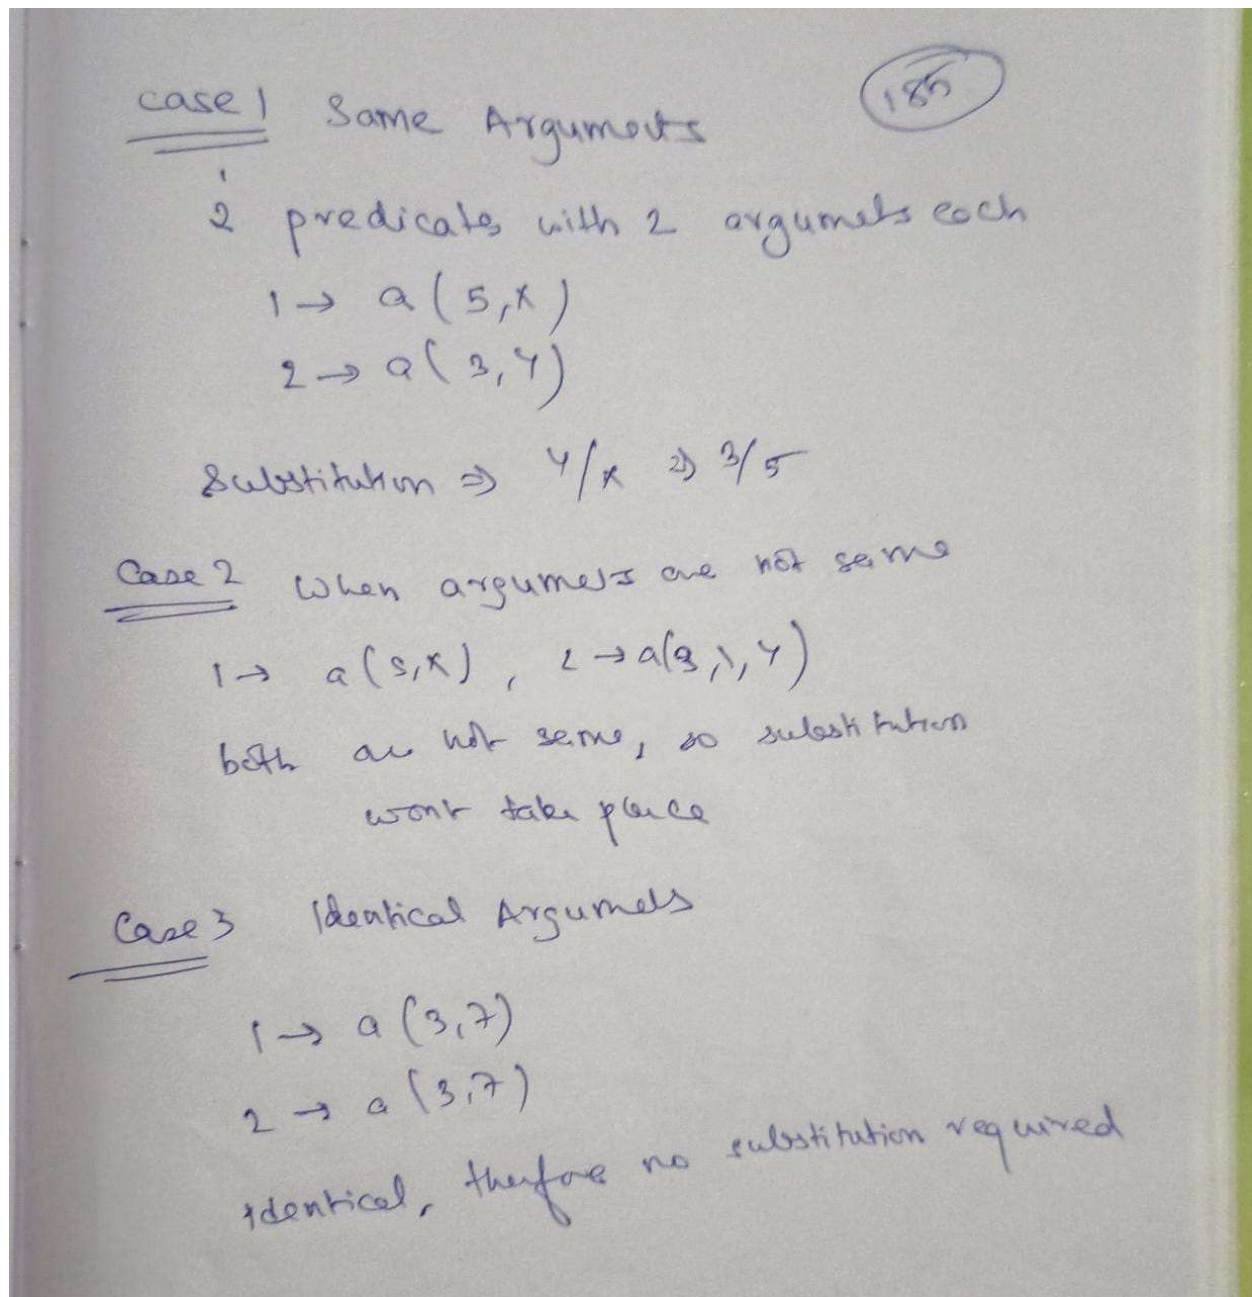 185
case 1 Same Arguments
2 predicates with 2 argumets each
1 → a (5, x)
2 → a (3, y)
Substitution ⇒ y/x ⇒ 3/5
Case 2 When argumets are not same
1 → a (3, x), 2 → a(3, 1, y)
both are not same, so substitution
wont take place
Case 3 Identical Argumets
1 → a (3,7)
2 → a (3,7)
identical, therfore no substitution required